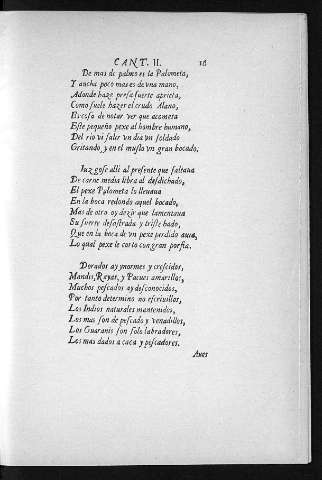 CANT. II. 16
De mas de palmo es la Palometa,
Y ancha poco mas es de vna mano,
Adonde haze presa fuerte aprieta,
Como suele hazer el crudo Alano,
Es cosa de notar ver que acometa
Este pequeño pexe al hombre humano,
Del rio vi salir vn dia vn soldado
Gritando, y en el muslo vn gran bocado.
Iuzgose alli al presente que faltaua
De carne media libra al desdichado,
El pexe Palometa lo lleuaua
En la boca redondo aquel bocado,
Mas de otro oy dezir que lamentaua
Su suerte desastrada y triste hado,
Que en la boca de vn pexe perdido auia,
Lo qual pexe le costo con gran porfia.
Dorados ay ynormes y crescidos,
Mandis, Rayas, y Pacues amarillos,
Muchos pescados ay desconocidos,
Por tanto determino no escriuillos,
Los Indios naturales mantenidos,
Los mas son de pescado y venadillos,
Los Guaranis son solo labradores,
Los mas dados a caça y pescadores.
Aues